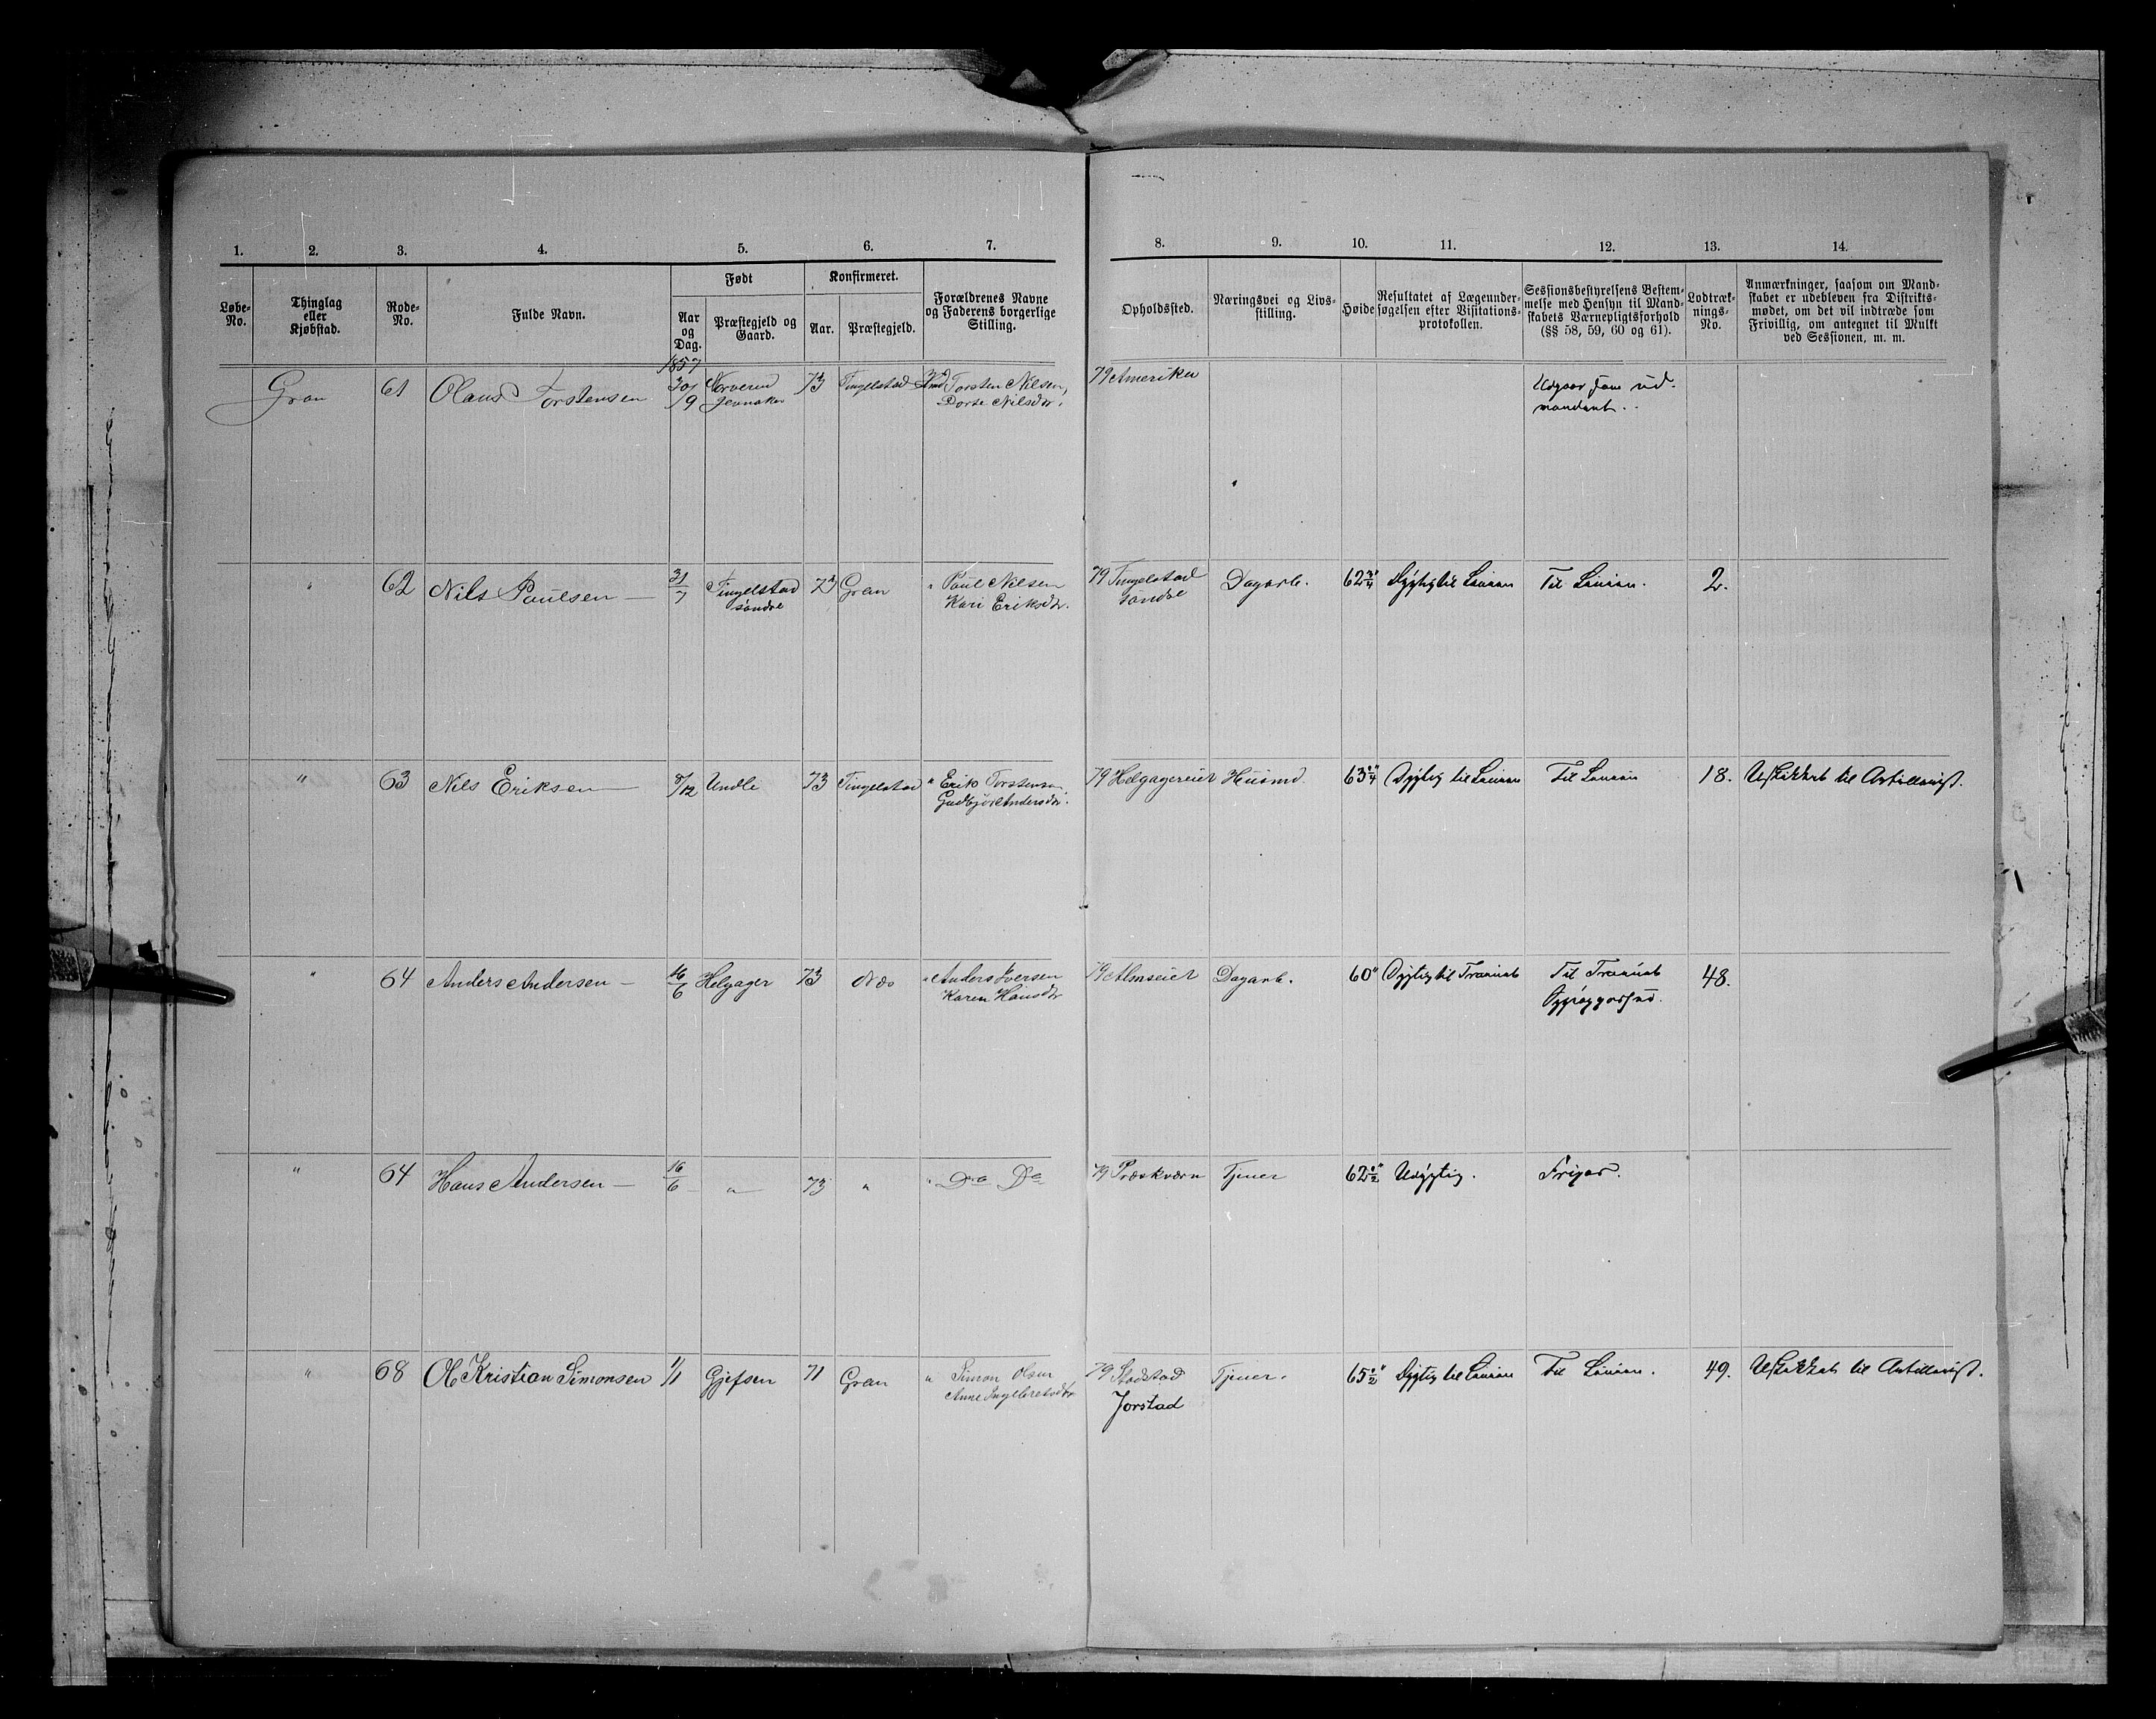 1. 2. 3. 4. 5. 6. 7. 8. 9. 10. 11. 12. 13. 14.
Løbe-No.
Thinglag eller Kjøbstad.
Rode-No.
Fulde Navn.
Født
Aar og Dag.
Præstegjeld og Gaard.
Konfirmeret.
Aar.
Præstegjeld.
Forældrenes Navne og Faderens borgerlige Stilling.
Opholdssted.
Næringsvei og Livsstilling.
Høide
Resultatet af Lægeundersøgelsen efter Visitationsprotokollen.
Sessionsbestyrelsens Bestemmelse med Hensyn til Mandskabets Værnepligtsforhold (§§ 58, 59, 60 og 61).
Lodtræknings-No.
Anmærkninger, saasom om Mandskabet er udebleven fra Distriktsmødet, om det vil indtræde som Frivillig, om antegnet til Mulkt ved Sessionen, m. m.
1857
Gran 61 Olaus Torstensen 30/9 Jevnaker 73 Tingelstad Torsten Nilsen, 79 Amerika Udgaar som ud-
Dorte Nilsdr. vandret.
" 62 Nils Paulsen — 31/7 Tingelstad 73 Gran " Paul Nilsen 79 Tingelstad Dagarb. 62 3/4" Dygtig til Linien Til Linien. 2.
søndre Kari Eriksdr. søndre
" 63 Nils Eriksen — 8/12 Undle 73 Tingelstad " Erik Torstensen 79 Helgagereiet Husmd. 63 1/4" Dygtig til Linien Til Linien 18. Udskikket til Artillerist.
Gudbjør Andersdr.
" 64 Anders Andersen — 16/6 Helgager 73 Næs " Anders Iversen 79 Almseiet Dagarb. 60" Dygtig til Trainet Til Trainet 48.
Karen Hansdr
" 64 Hans Andersen — 16/6 " 73 " " Do Do 79 Præstkværn Tjener 62 1/2" Udygtig. Frigar.
" 68 Ole Kristian Simonsen 1/1 Gjefsen 71 Gran " Simon Olsen 79 Stadstad Tjener. 65 1/2" Dygtig til Linien Til Linien. 49. Udskikket til Artillerist.
Anne Ingebretsdr Jorstad